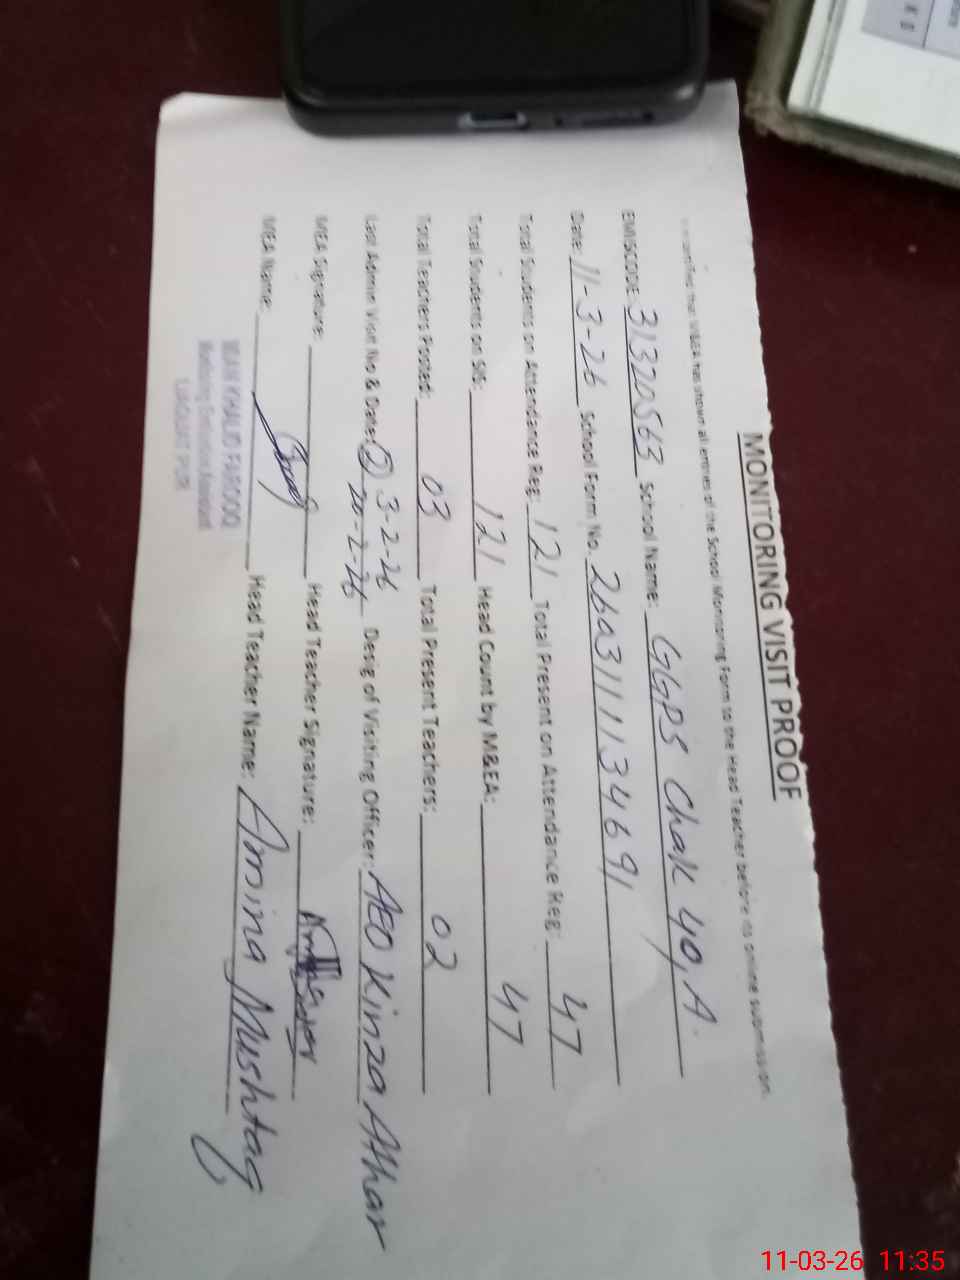 MONITORING VISIT PROOF
that M&EA has shown all entries of the School Monitoring Form to the Head Teacher before its online submission.
EMISCODE: 31320563 School Name: GGPS Chak 40, A.
Date: 11-3-26 School Form No. 26a3111134691
Total Students on Attendance Reg: 121 Total Present on Attendance Reg: 47
Total Students on SIS: 121 Head Count by M&EA: 47
Total Teachers Posted: 03 Total Present Teachers: 02
3-2-26
Last Admin Visit No & Date: (2) 20-2-26 Desig of Visiting Officer: AEO Kinza Athar
MEA Signature: Head Teacher Signature:
MEA Name: Head Teacher Name: Amina Mushtaq
MIAN KHALID FAROOQ
LIAQUAT PUR
11-03-26 11:35